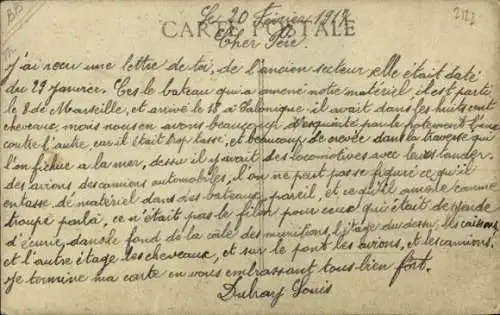 Le 20 Février 1917
CARTE POSTALE
Cher Père
J'ai reçu une lettre de toi, de l'ancien secteur, elle était daté
du 29 Janvier. C'es le bateau qui a amené notre matériel il est parti
le 8 de Marseille, et arrivé le 18 à Salonique il avait dans les huits cent
chevaux, mais nous en avons beaucoup par le frotement l'un
contre l'autre, car il était trop tassé, et beaucoup de crevée dans la traversé que
l'on fichue a la mer, dessu il y avait des locomotives avec leur tender.
des avions, des camions automobiles, l'on ne peut pas se figuré ce qu'il
entasse, de matériel dans des bateaux pareil, et ce qu'il amène comme
troupe par la, ce n'était pas le filon pour ceux qui était de garde
d'écurie, dans le fond de la cale des munitions, l'étage du dessu, les caissons
et l'autre étage les chevaux, et sur le pont les avions, et les camions.
Je termine ma carte en vous embrassant tous bien fort.
Louis